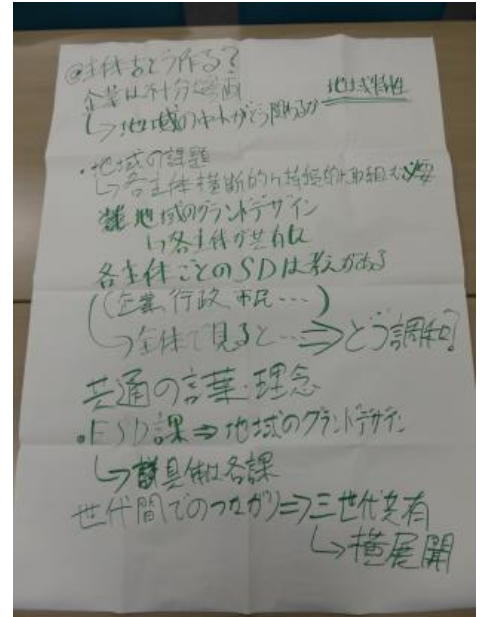 ◎主体をどう作る?
企業は不十分 参画
↳地域のネットがどう関わるか 地域特性
・地域の課題
↳各主体横断的、持続的取組む必要
地域のグランドデザイン
↳各主体が共有化
各主体ごとのSDは考えがある
(企業、行政、市民…)
↳全体で見ると…⇒どう調和?
共通の言葉・理念
・ESD課⇒地域のグランドデザイン
↳具体は各課
世代間でのつながり⇒三世代共有
↳横展開